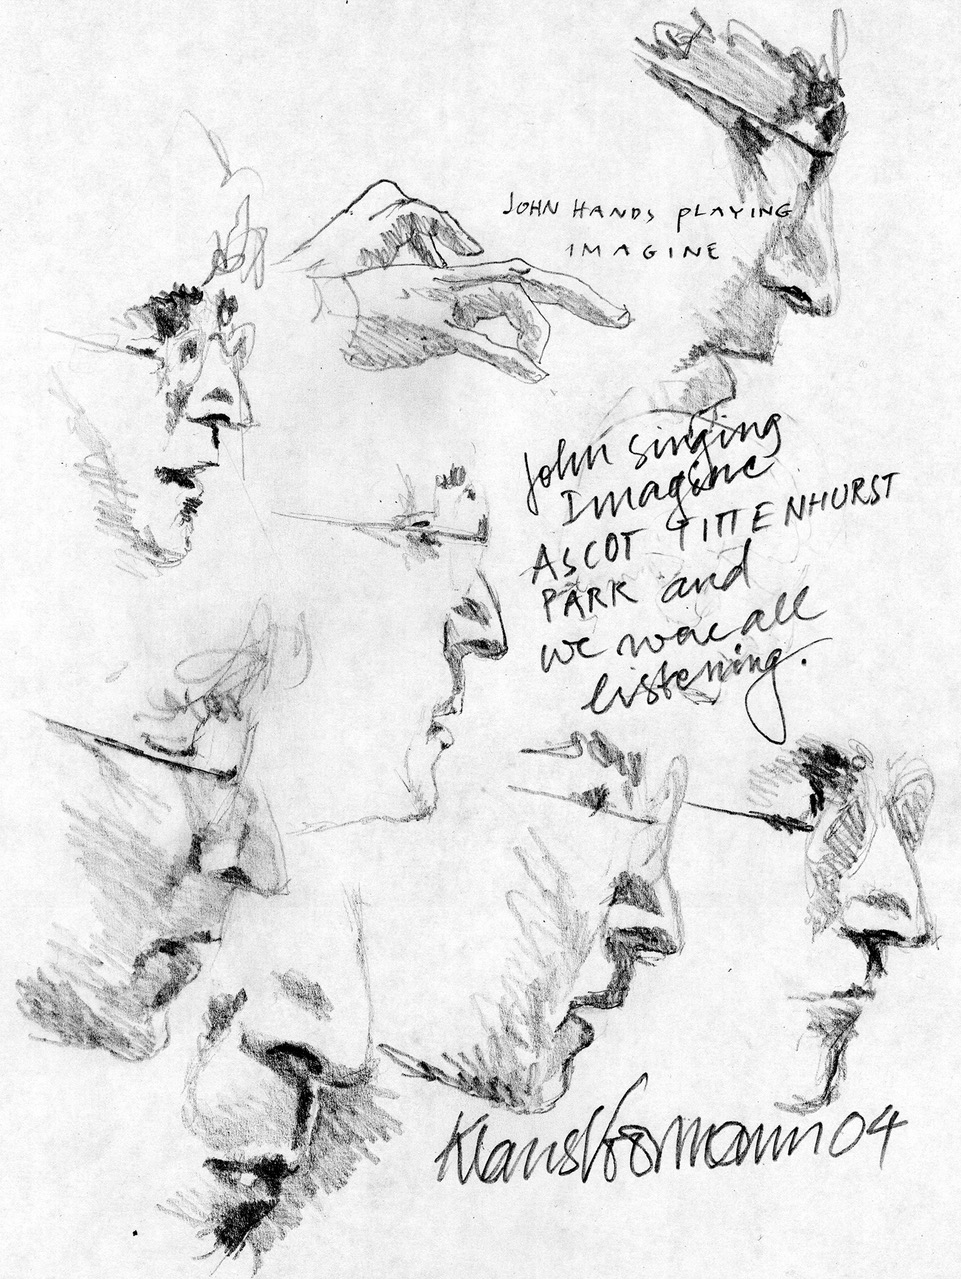 JOHN HANDS PLAYING
IMAGINE
John singing
Imagine
ASCOT TITTENHURST
PARK and
we were all
listening.
Klaus Voormann 04